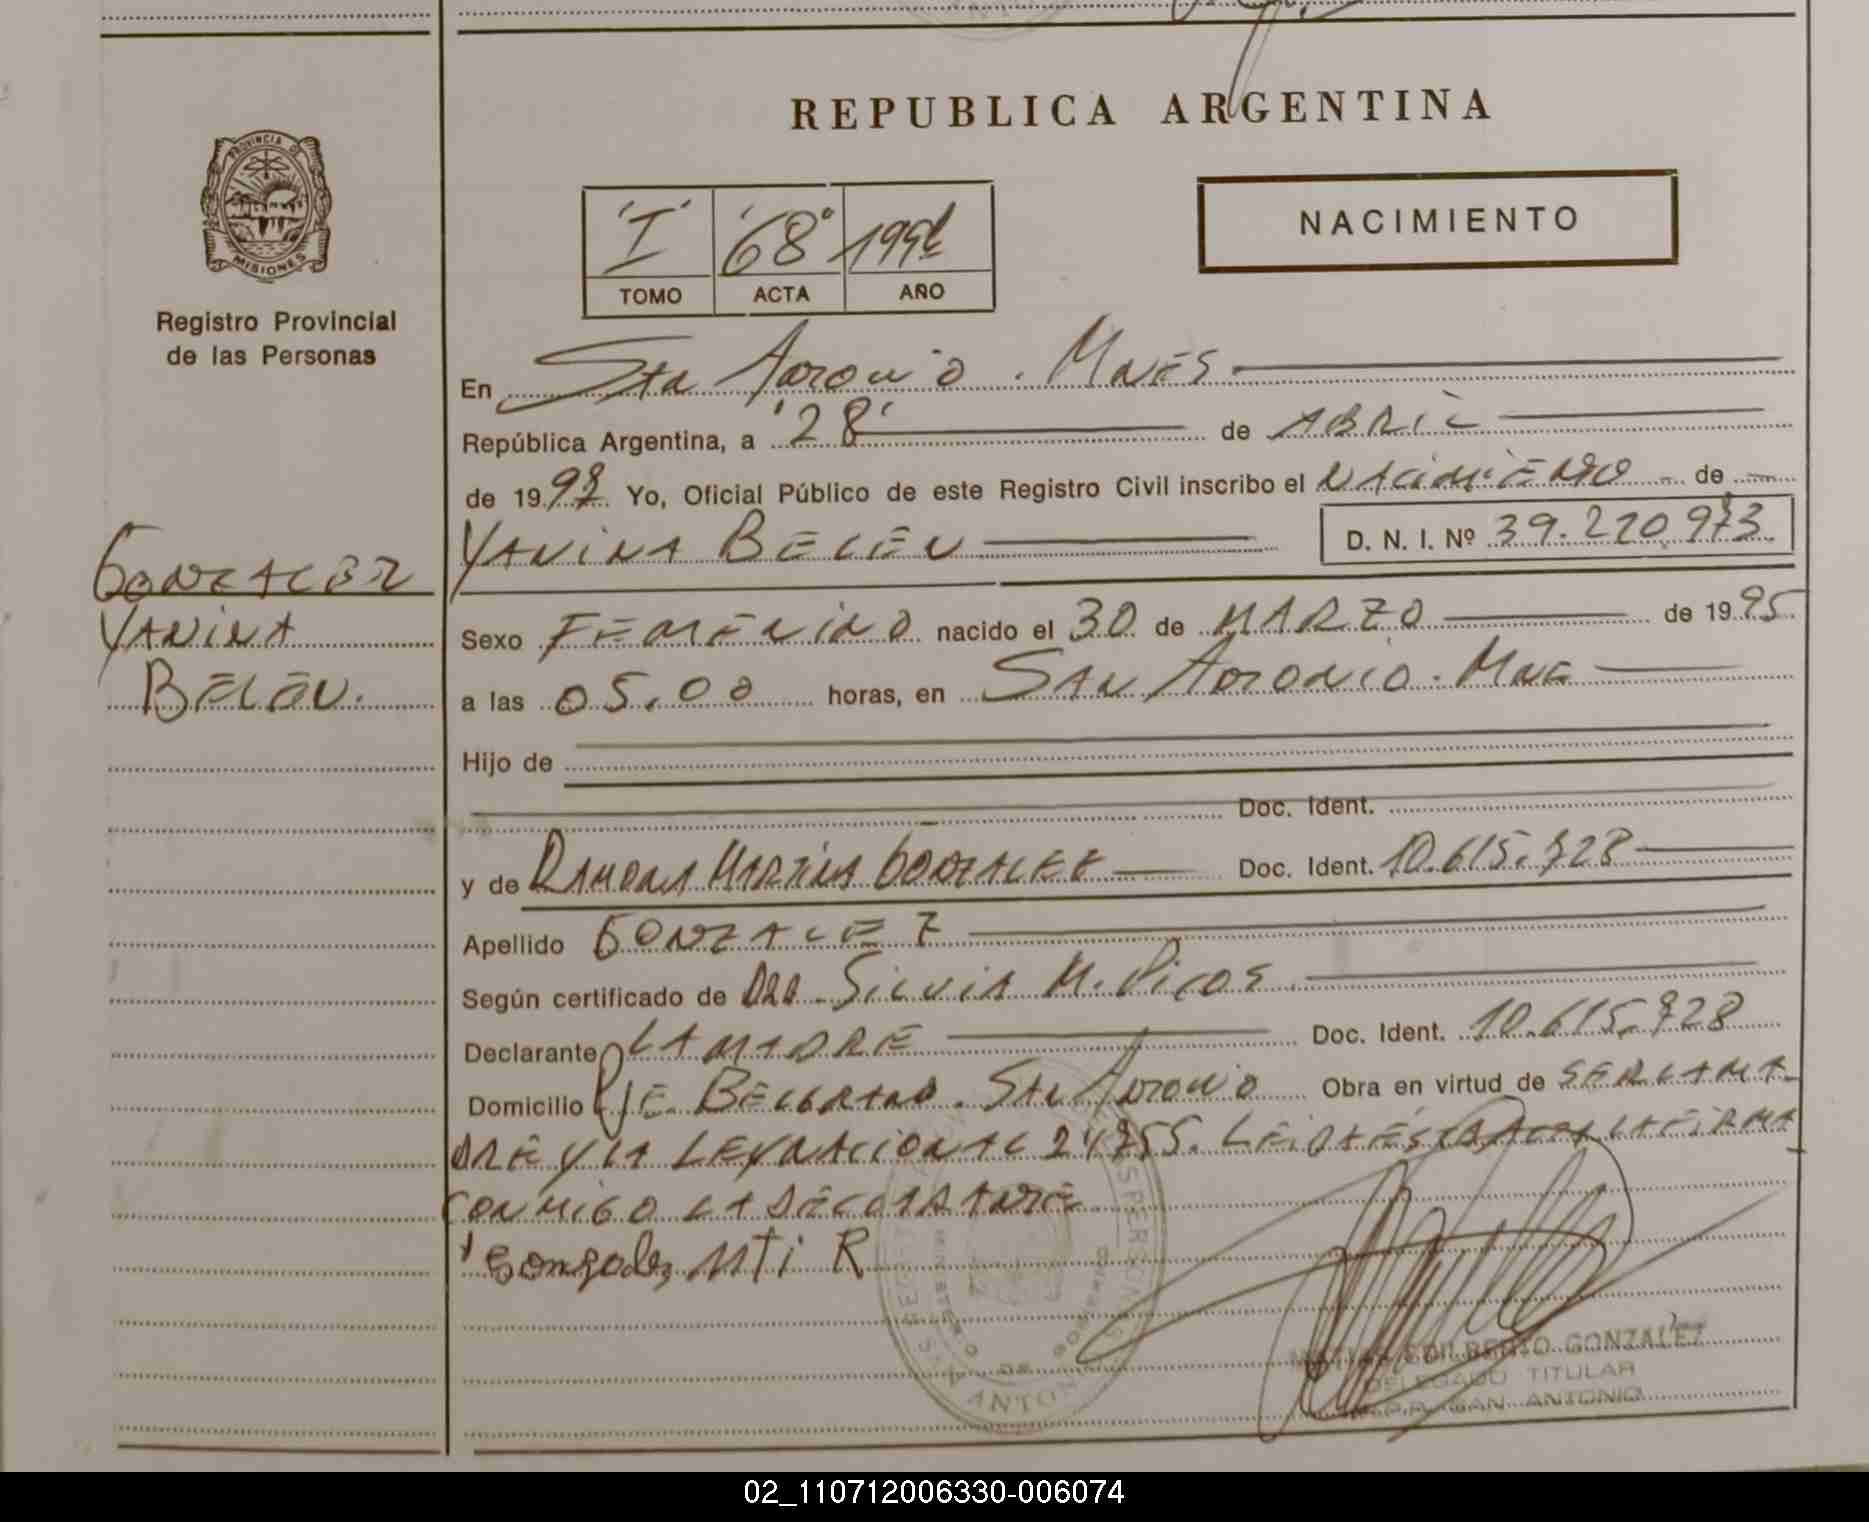 REPUBLICA ARGENTINA
PROVINCIA DE
MISIONES
Registro Provincial
de las Personas
NACIMIENTO
"I" "68"
TOMO ACTA AÑO
En San Antonio. Mnes
República Argentina, a "28" de ABRIL
de 199 Yo, Oficial Público de este Registro Civil inscribo el NACIMIENTO de
YANINA BELEN D. N. I. Nº 39.220.973
GONZALEZ
YANINA
BELEN.
Sexo FEMENINO nacido el 30 de MARZO de 1995
a las 05.00 horas, en SAN Antonio. Mne
Hijo de
Doc. Ident.
y de RAMONA MARTINA GONZALEZ Doc. Ident. 10.615.728
Apellido GONZALEZ
Según certificado de DRA. SILVIA M. Picos
Declarante LA MADRE Doc. Ident. 10.615.728
Domicilio Pje. BELGRANO. SAN Antonio Obra en virtud de SER LA MA-
DRE Y LA LEY NACIONAL LEIDA ESTA ACTA LA FIRMA
CONMIGO LA DECLARANTE
Gonzalez Mti R
MATIAS EDILBERTO GONZALEZ
DELEGADO TITULAR
R.P.P. SAN ANTONIO
02_110712006330-006074